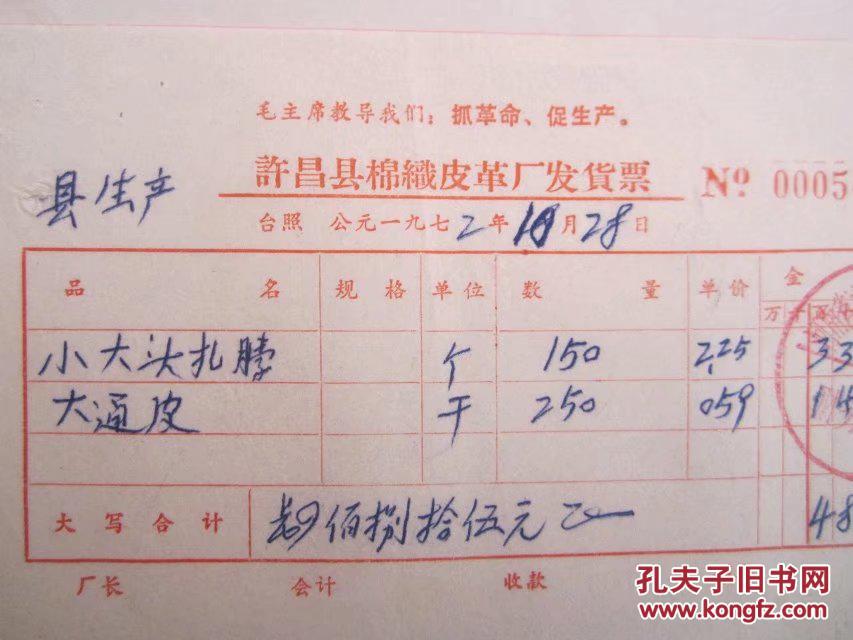 毛主席教导我们：抓革命、促生产。
許昌县棉織皮革厂发货票 Nº 0005
县生产
台照 公元一九七2年10月28日
品名 规格 单位 数量 单价 金
万 千 百
小大头扎 个 150 2.25 33
大通皮 250 059 14
大写合计 佰捌拾伍元 48
厂长 会计 收款
孔夫子旧书网
www.kongfz.com